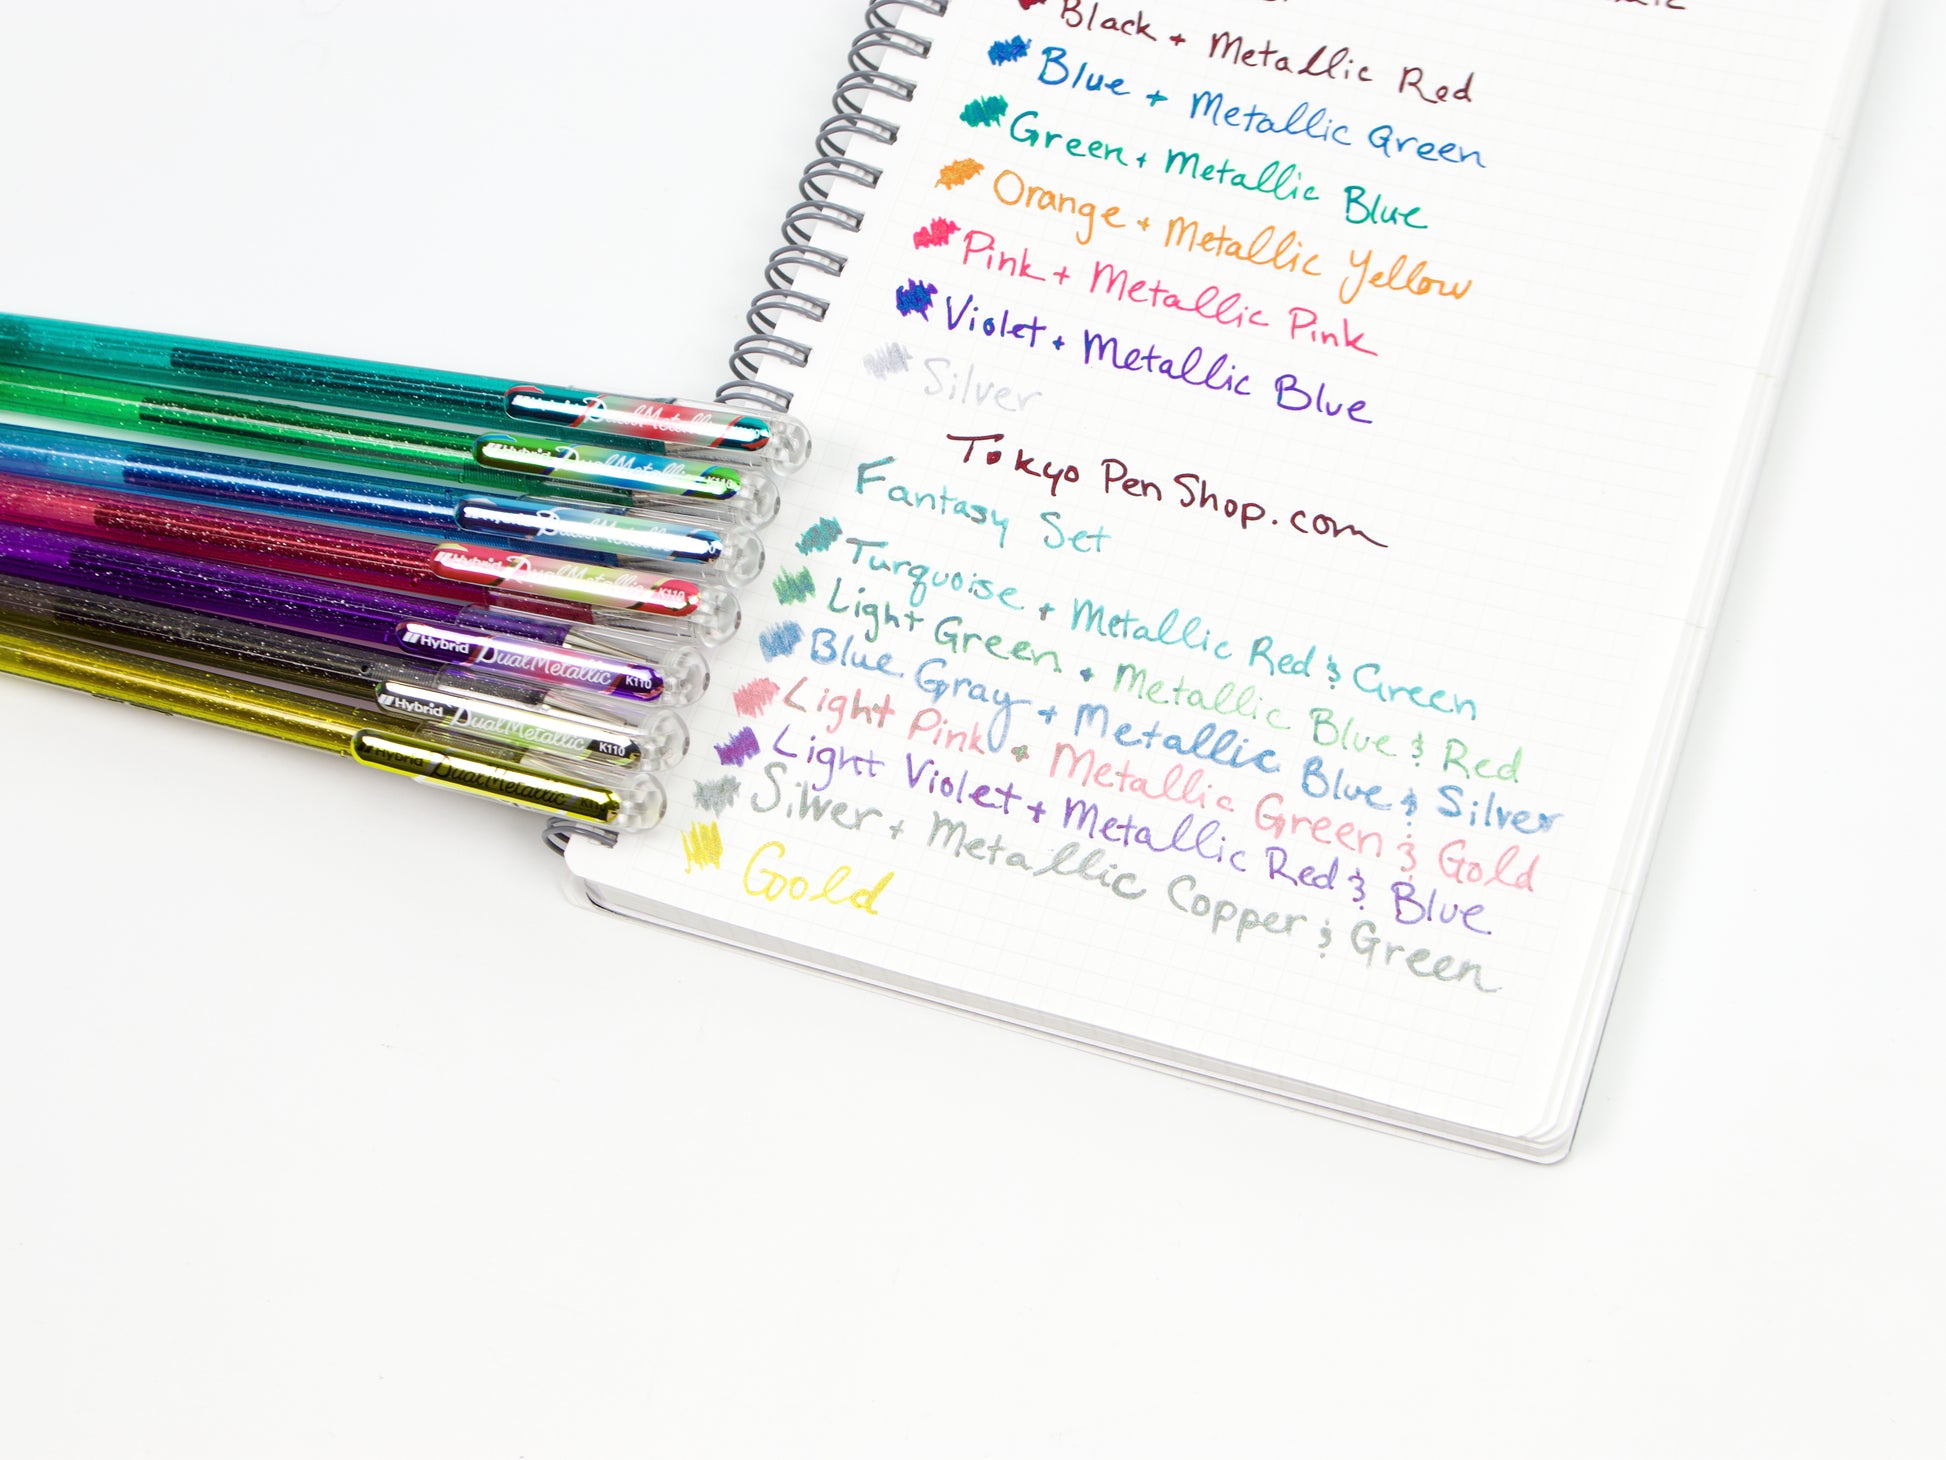 Black + Metallic Red
Blue + Metallic Green
Green + Metallic Blue
Orange + Metallic Yellow
Pink + Metallic Pink
Violet + Metallic Blue
Silver
Tokyo Pen Shop.com
Fantasy Set
Turquoise + Metallic Red & Green
Light Green + Metallic Blue & Red
Blue Gray + Metallic Blue & Silver
Light Pink + Metallic Green & Gold
Light Violet + Metallic Red & Blue
Silver + Metallic Copper & Green
Gold
Hybrid DualMetallic
Hybrid DualMetallic K110
DualMetallic
Hybrid DualMetallic K110
Hybrid DualMetallic K110
Hybrid DualMetallic K110
Hybrid DualMetallic